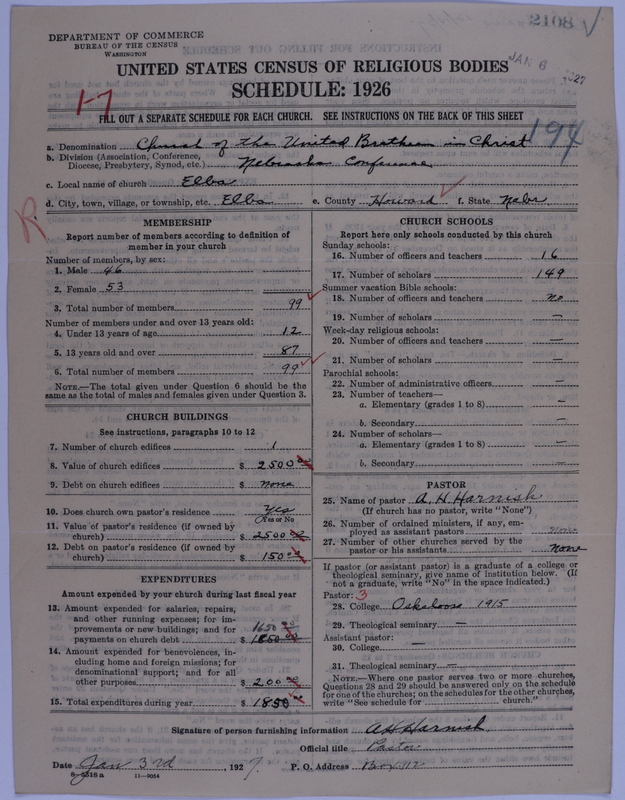 DEPARTMENT OF COMMERCE
BUREAU OF THE CENSUS
WASHINGTON
JAN 6 1927
UNITED STATES CENSUS OF RELIGIOUS BODIES
SCHEDULE: 1926
1-7
FILL OUT A SEPARATE SCHEDULE FOR EACH CHURCH. SEE INSTRUCTIONS ON THE BACK OF THIS SHEET
194
a. Denomination Church of the United Brethren in Christ
b. Division (Association, Conference, Diocese, Presbytery, Synod, etc.) Nebraska Conference
c. Local name of church Elba
d. City, town, village, or township, etc. Elba e. County Howard f. State Nebr
R
MEMBERSHIP
Report number of members according to definition of
member in your church
Number of members, by sex:
1. Male 46
2. Female 53
3. Total number of members 99
Number of members under and over 13 years old:
4. Under 13 years of age 12
5. 13 years old and over 87
6. Total number of members 99
NOTE.—The total given under Question 6 should be
same as the total of males and females given under Question 3.
CHURCH BUILDINGS
See instructions, paragraphs 10 to 12
7. Number of church edifices 1
8. Value of church edifices $ 2500.00
9. Debt on church edifices $ none
10. Does church own pastor's residence Yes
Yes or No
11. Value of pastor's residence (if owned by
church) $ 2500.00
12. Debt on pastor's residence (if owned by
church) $ 150.00
EXPENDITURES
Amount expended by your church during last fiscal year
13. Amount expended for salaries, repairs,
and other running expenses; for im-
provements or new buildings; and for
payments on church debt $ 1650.00
1850.00
14. Amount expended for benevolences, in-
cluding home and foreign missions; for
denominational support; and for all
other purposes $ 200.00
15. Total expenditures during year $ 1850.00
CHURCH SCHOOLS
Report here only schools conducted by this church
Sunday schools:
16. Number of officers and teachers 16
17. Number of scholars 149
Summer vacation Bible schools:
18. Number of officers and teachers no
19. Number of scholars —
Week-day religious schools:
20. Number of officers and teachers —
21. Number of scholars —
Parochial schools:
22. Number of administrative officers —
23. Number of teachers—
a. Elementary (grades 1 to 8) —
b. Secondary —
24. Number of scholars—
a. Elementary (grades 1 to 8) —
b. Secondary —
PASTOR
25. Name of pastor A H Harnish
(If church has no pastor, write "None")
26. Number of ordained ministers, if any, em-
ployed as assistant pastors none
27. Number of other churches served by the
pastor or his assistants none
If pastor (or assistant pastor) is a graduate of a college or
theological seminary, give name of institution below. (If
not a graduate, write "No" in the space indicated.)
Pastor: 3
28. College Oskaloosa 1915
29. Theological seminary —
Assistant pastor:
30. College —
31. Theological seminary —
NOTE.—Where one pastor serves two or more churches,
Questions 28 and 29 should be answered only on the schedule
for one of the churches; on the schedules for the other churches,
write "See schedule for church."
Signature of person furnishing information A H Harnish
Official title Pastor
Date Jan 3rd, 1927. P. O. Address Box 112
8—5318 a 11—9054